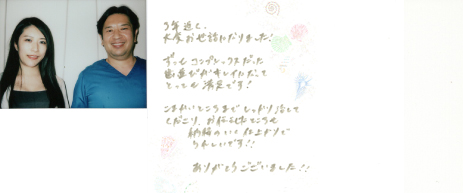 3年近く、
大変お世話になりました!
ずっとコンプレックスだった
歯並びがキレイになって
とっても満足です!
こまかいところまでしっかり治して
くださり、お任せしたところも
納得のいく仕上がりで
うれしいです!!
ありがとうございました!!